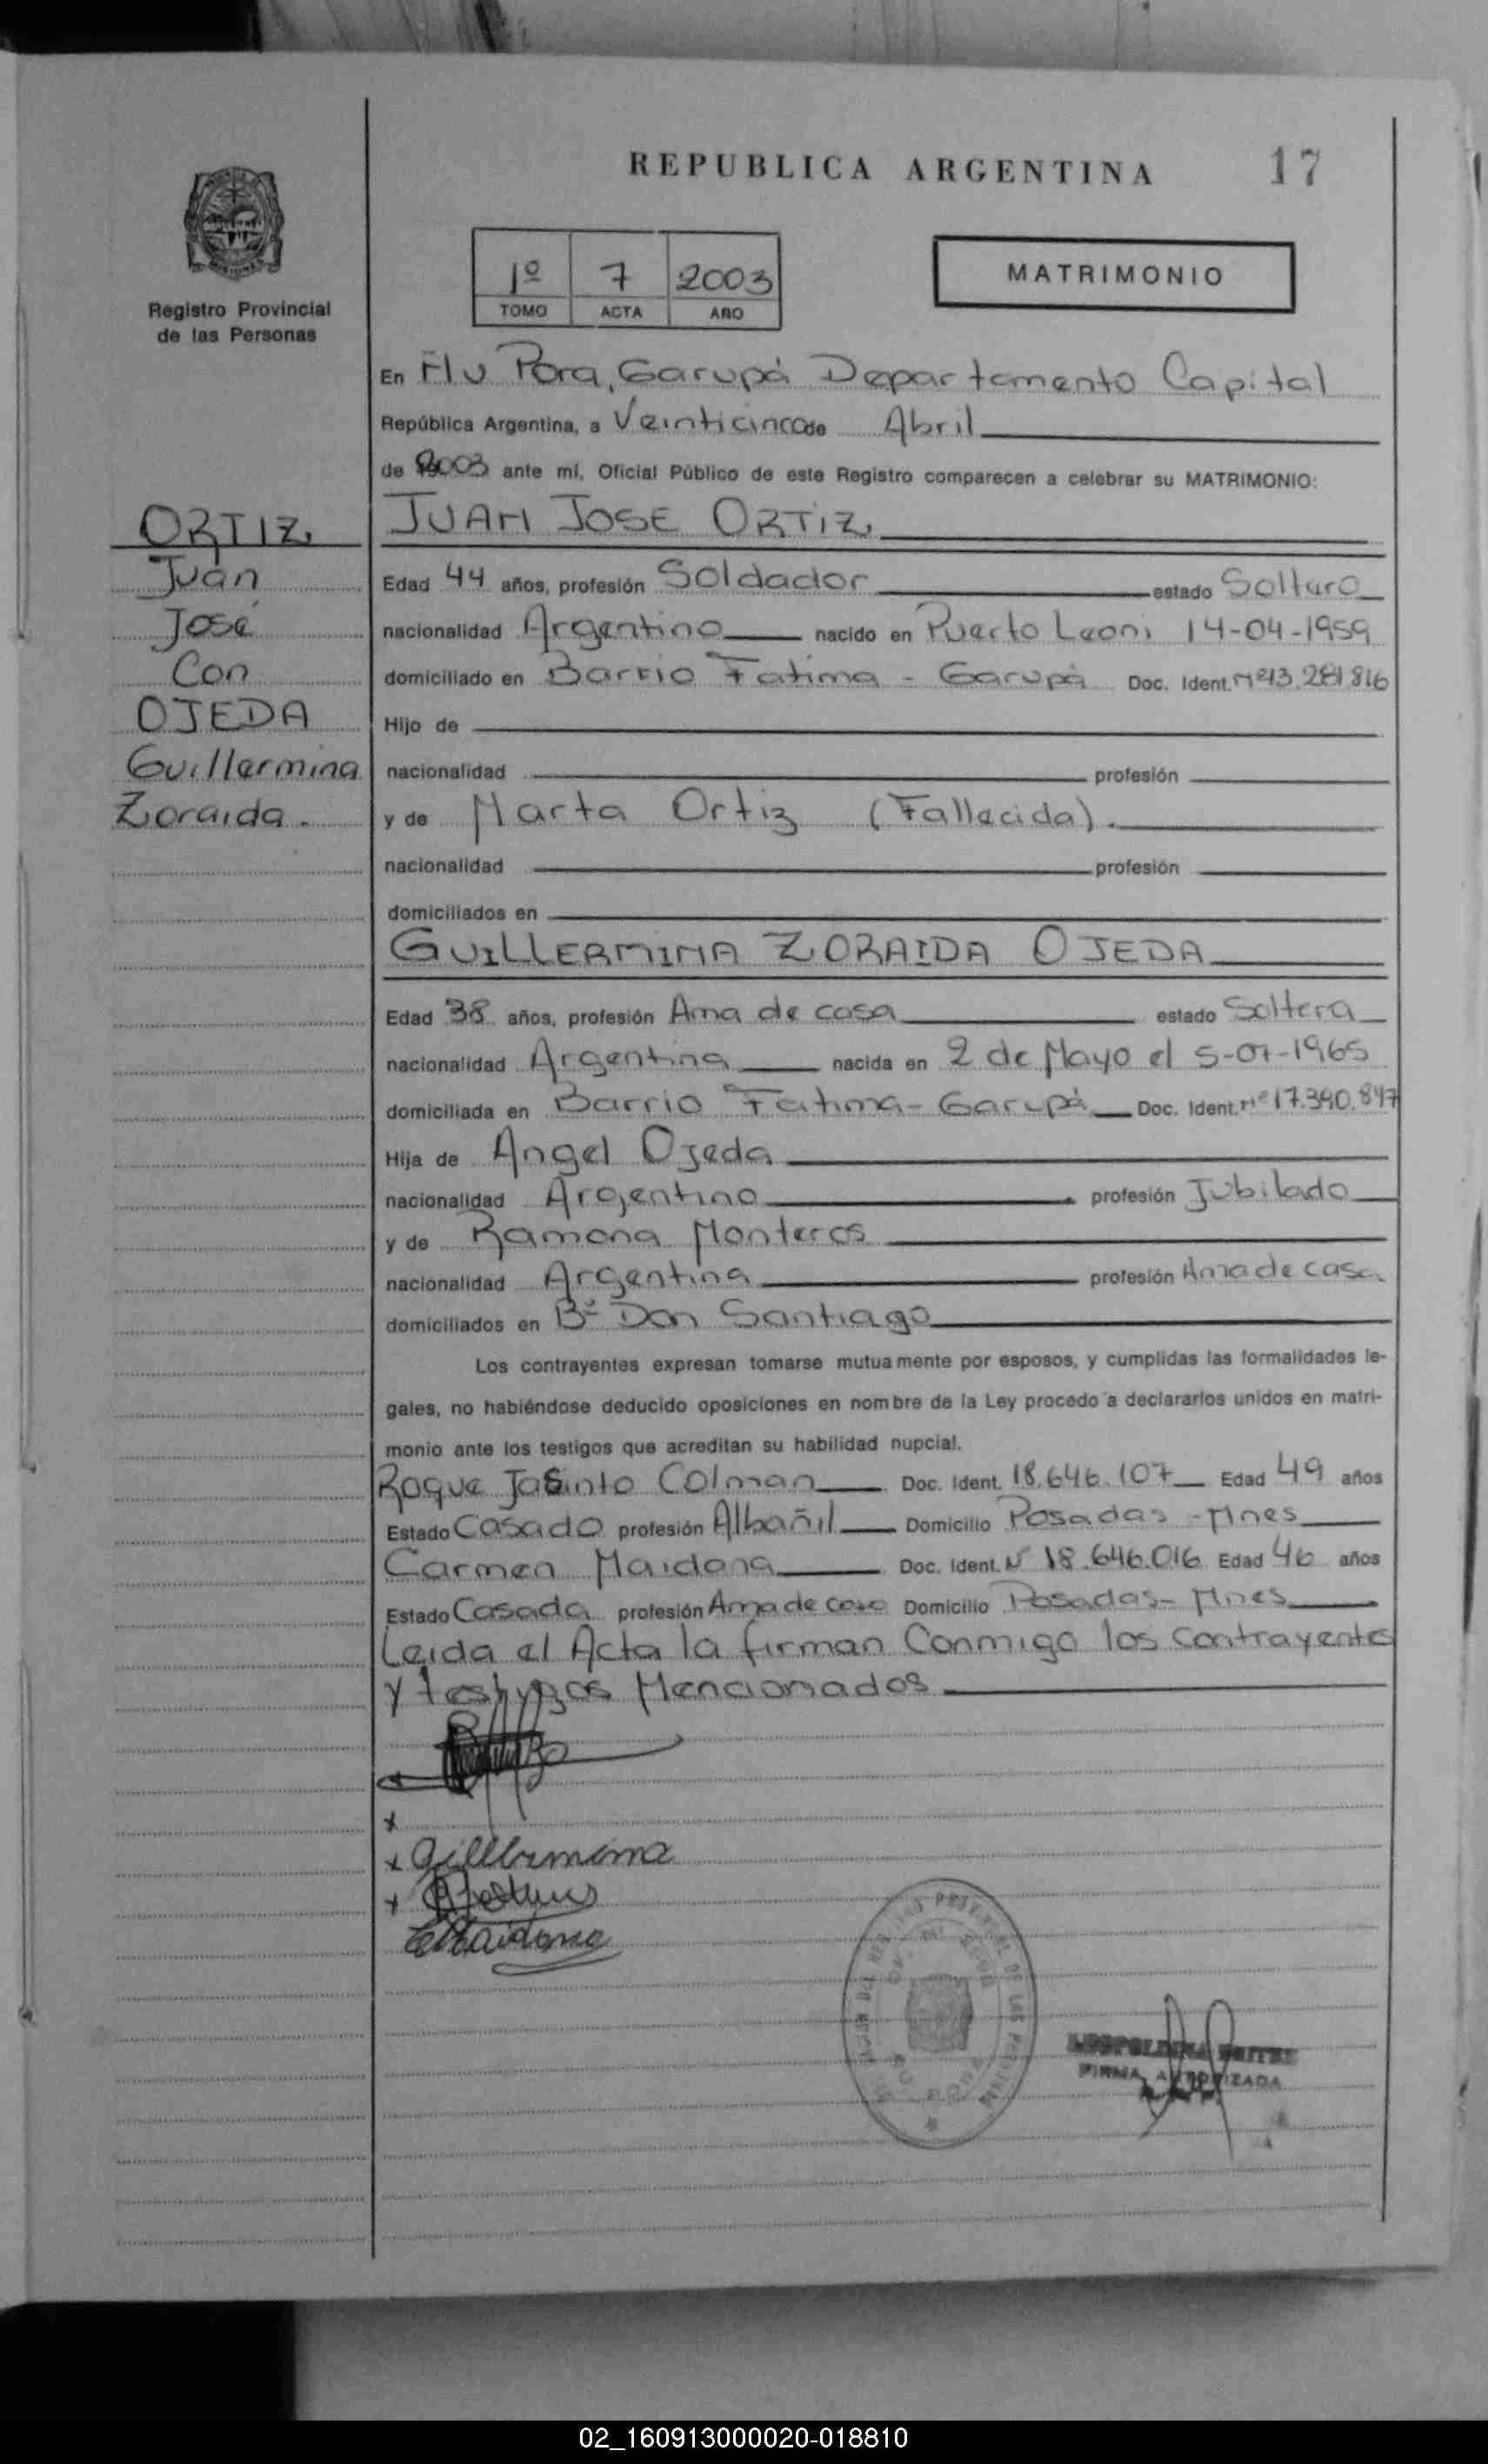 REPUBLICA ARGENTINA 17
Registro Provincial
de las Personas
1º 7 2003
TOMO ACTA AÑO
MATRIMONIO
En Ñu Pora, Garupá Departamento Capital
República Argentina, a Veinticinco de Abril
de 2003 ante mí, Oficial Público de este Registro comparecen a celebrar su MATRIMONIO:
ORTIZ,
Juan
José
Con
OJEDA
Guillermina
Zoraida.
JUAN JOSE ORTIZ,
Edad 44 años, profesión Soldador estado Soltero
nacionalidad Argentino nacido en Puerto Leoni 14-04-1959
domiciliado en Barrio Fatima - Garupá Doc. Ident. Nº 13.281.816
Hijo de
nacionalidad profesión
y de Marta Ortiz (Fallecida).
nacionalidad profesión
domiciliados en
GUILLERMINA ZORAIDA OJEDA
Edad 38 años, profesión Ama de casa estado Soltera
nacionalidad Argentina nacida en 2 de Mayo el 5-04-1965
domiciliada en Barrio Fatima - Garupá Doc. Ident. Nº 17.390.847
Hija de Angel Ojeda
nacionalidad Argentino profesión Jubilado
y de Ramona Monteros
nacionalidad Argentina profesión Ama de casa
domiciliados en Bº Don Santiago
Los contrayentes expresan tomarse mutuamente por esposos, y cumplidas las formalidades le-
gales, no habiéndose deducido oposiciones en nombre de la Ley procedo a declararlos unidos en matri-
monio ante los testigos que acreditan su habilidad nupcial.
Roque Jasinto Colman Doc. Ident. 18.646.107 Edad 49 años
Estado Casado profesión Albañil Domicilio Posadas - Mnes
Carmen Maidana Doc. Ident. Nº 18.646.016 Edad 46 años
Estado Casada profesión Ama de casa Domicilio Posadas - Mnes
Leida el Acta la firman Conmigo los Contrayentes
y testigos Mencionados
FIRMA AUTORIZADA
02_160913000020-018810